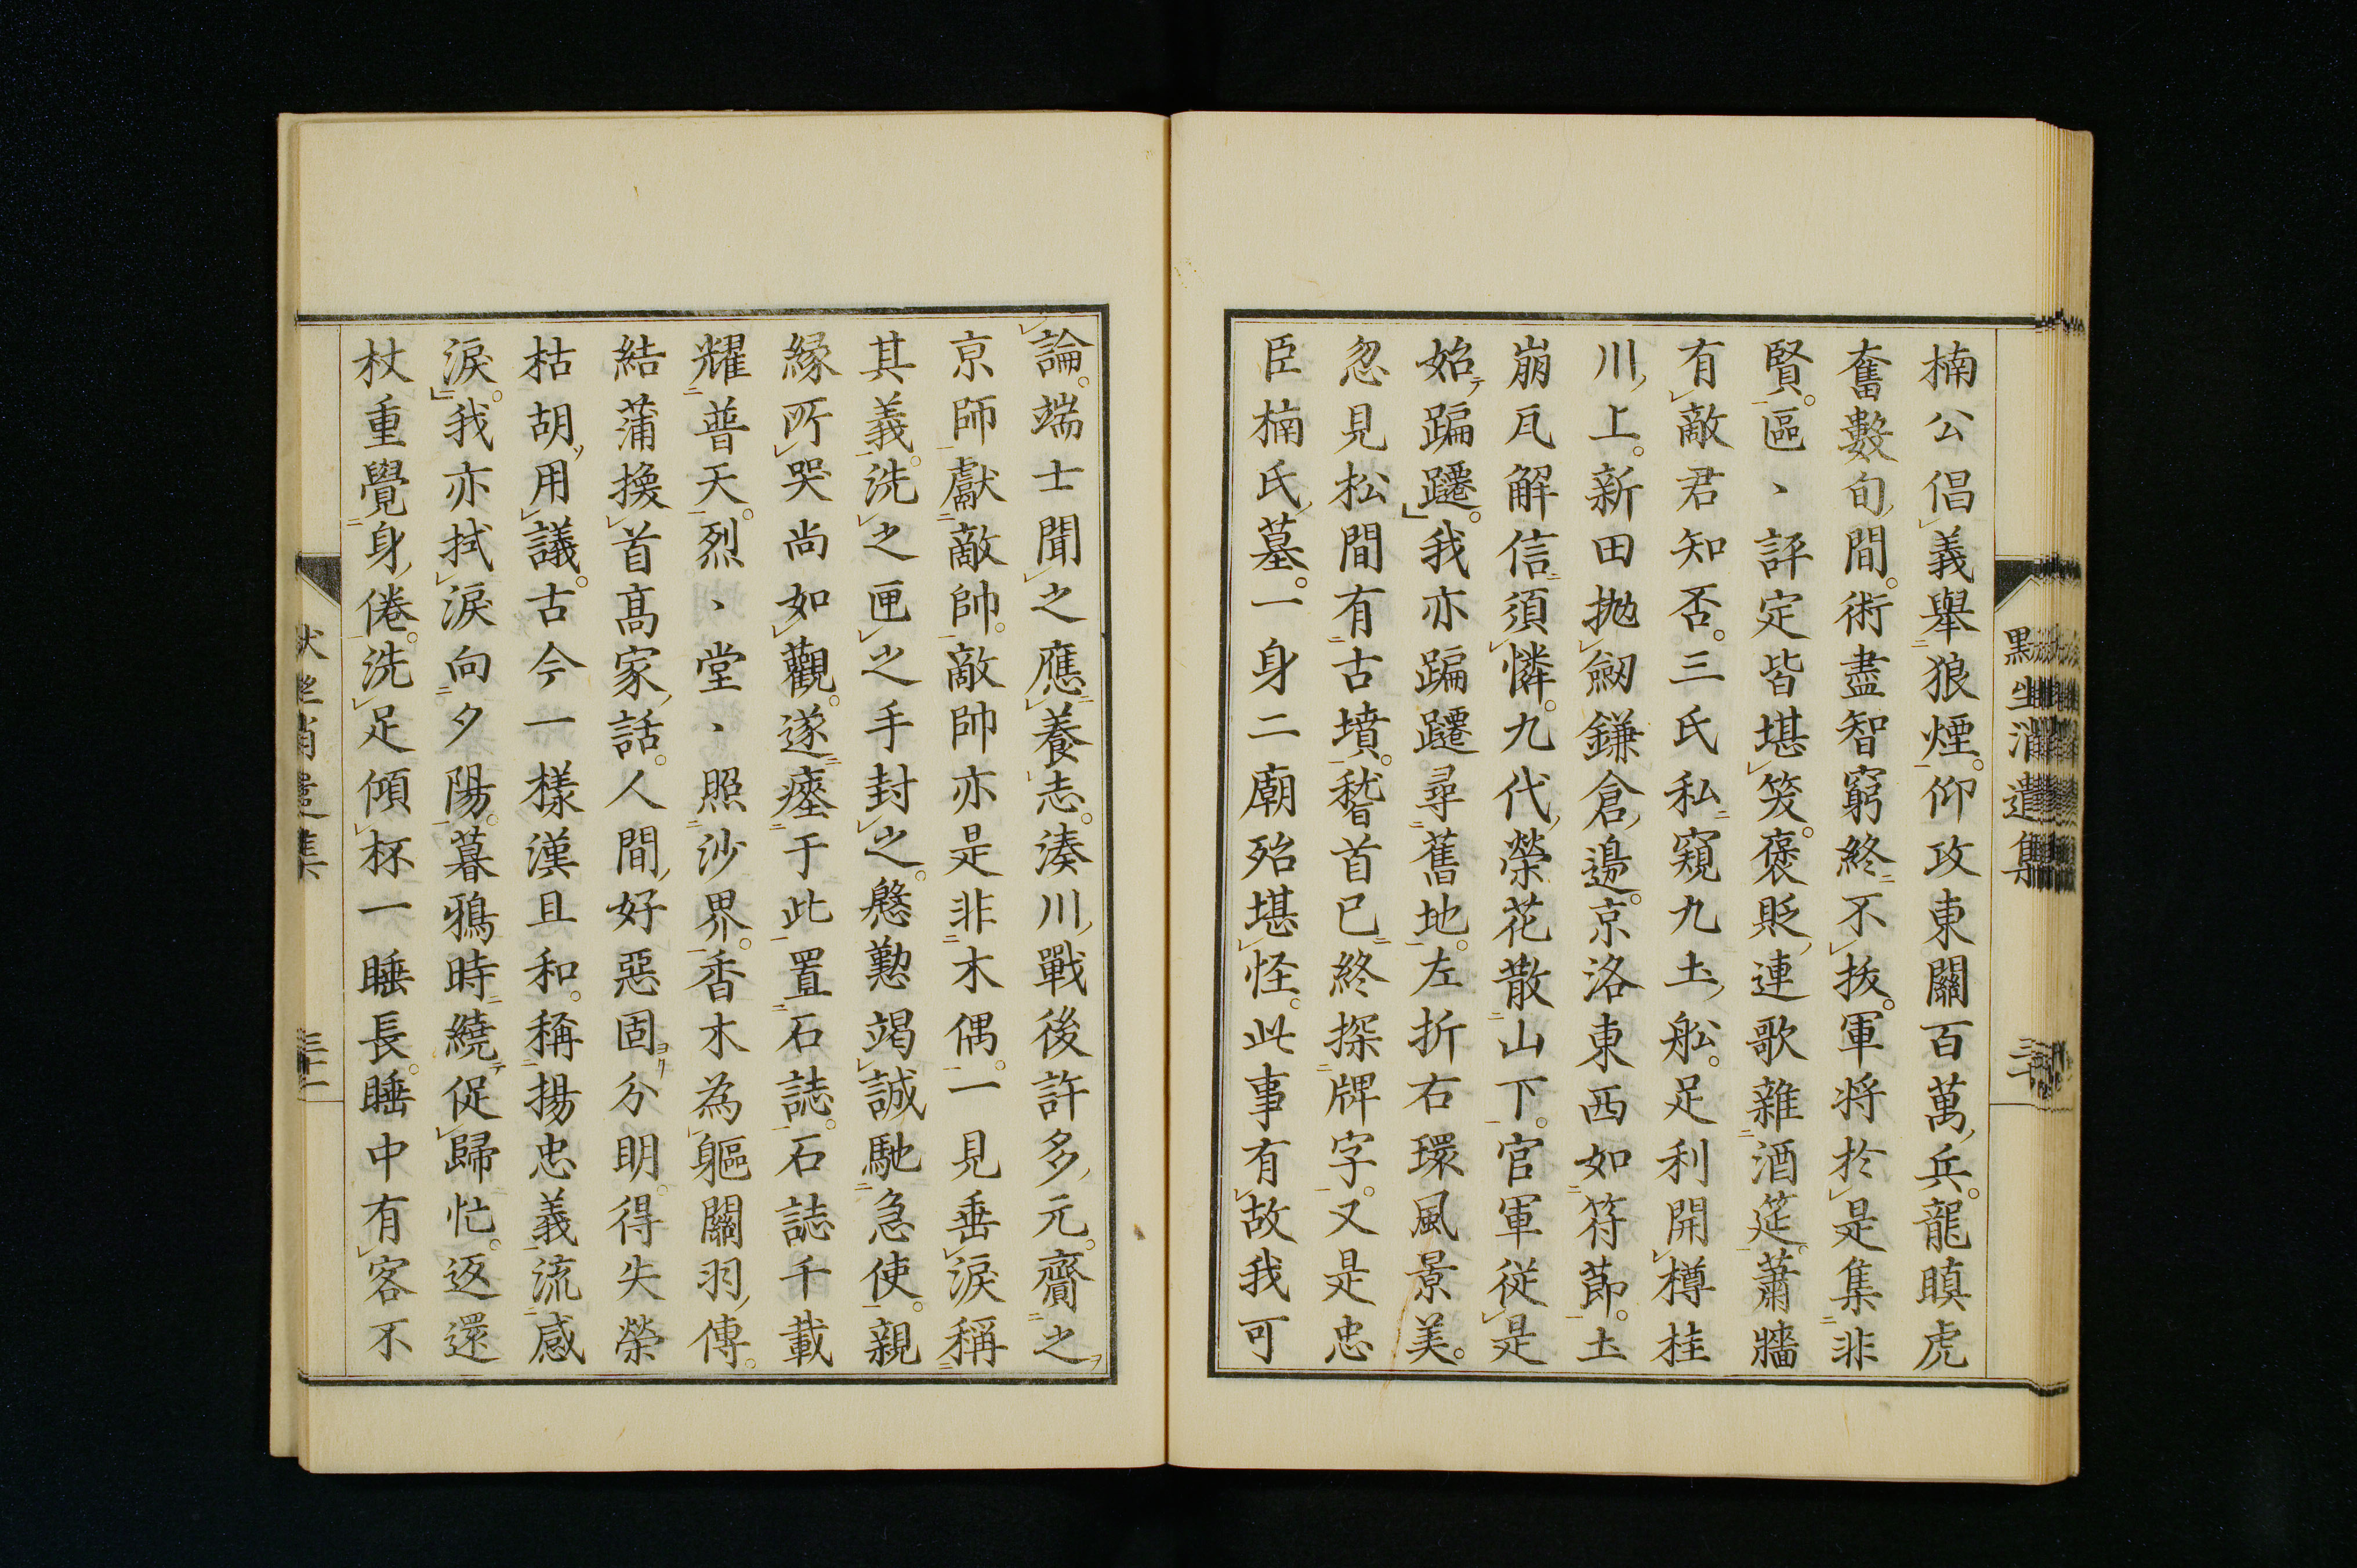 楠公倡義舉狼煙。仰攻東關百萬兵。龍瞋虎
奮數旬間。術盡智窮終不拔。軍将於是集非
賢。區、評定皆堪笑。褒貶連歌雜酒筵。蕭牆
有敵君知否。三氏私窺九土舩。足利開樽桂
川上。新田抛劒鎌倉邉。京洛東西如符莭。土
崩瓦解信須憐。九代榮花散山下。官軍従是
始蹁躚。我亦蹁躚尋舊地。左折右環風景美。
忽見松間有古墳。嵆首已終探牌字。又是忠
臣楠氏墓。一身二廟殆堪怪。此事有故我可
論。端士聞之應養志。湊川戰後許多元。齎之
京師獻敵帥。敵帥亦是非木偶。一見垂涙稱
其義。洗之匣之手封之。慇懃竭誠馳急使。親
緣所哭尚如觀。遂瘞于此置石誌。石誌千載
耀普天。烈、堂、照沙界。香木為軀關羽傳。
結蒲換首髙家話。人間好惡固分明。得失榮
枯胡用議。古今一樣漢且和。稱揚忠義流感
涙。我亦拭涙向夕陽。暮鴉時繞促歸忙。返還
杖重覺身倦。洗足傾杯一睡長。睡中有客不